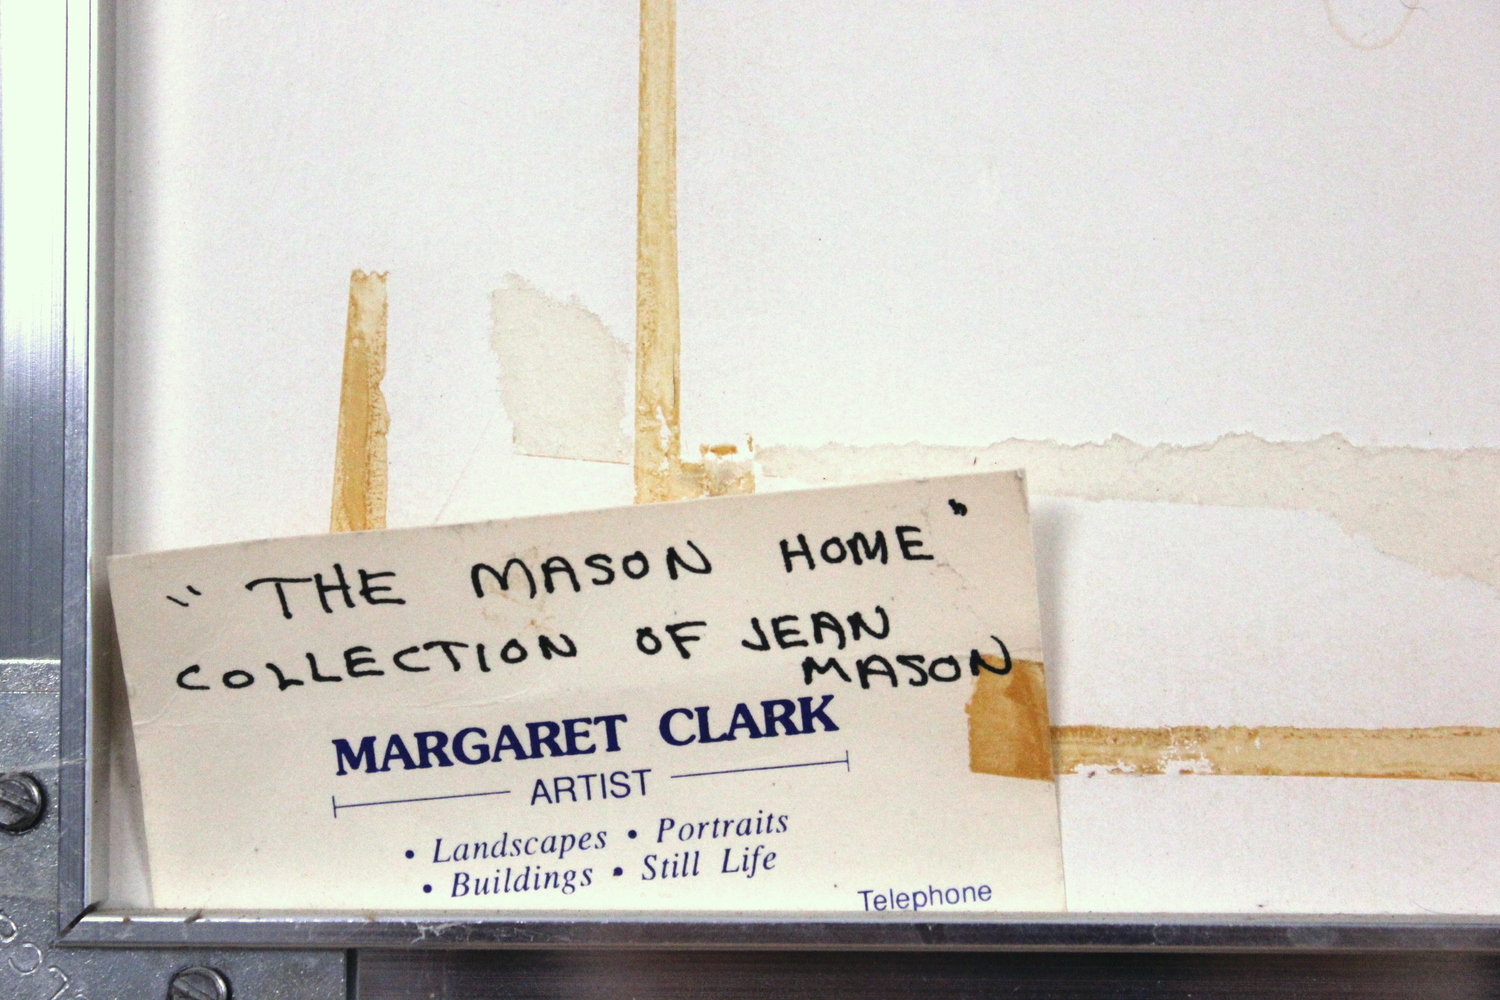 " THE MASON HOME "
COLLECTION OF JEAN
MASON
MARGARET CLARK
ARTIST
• Landscapes • Portraits
• Buildings • Still Life
Telephone